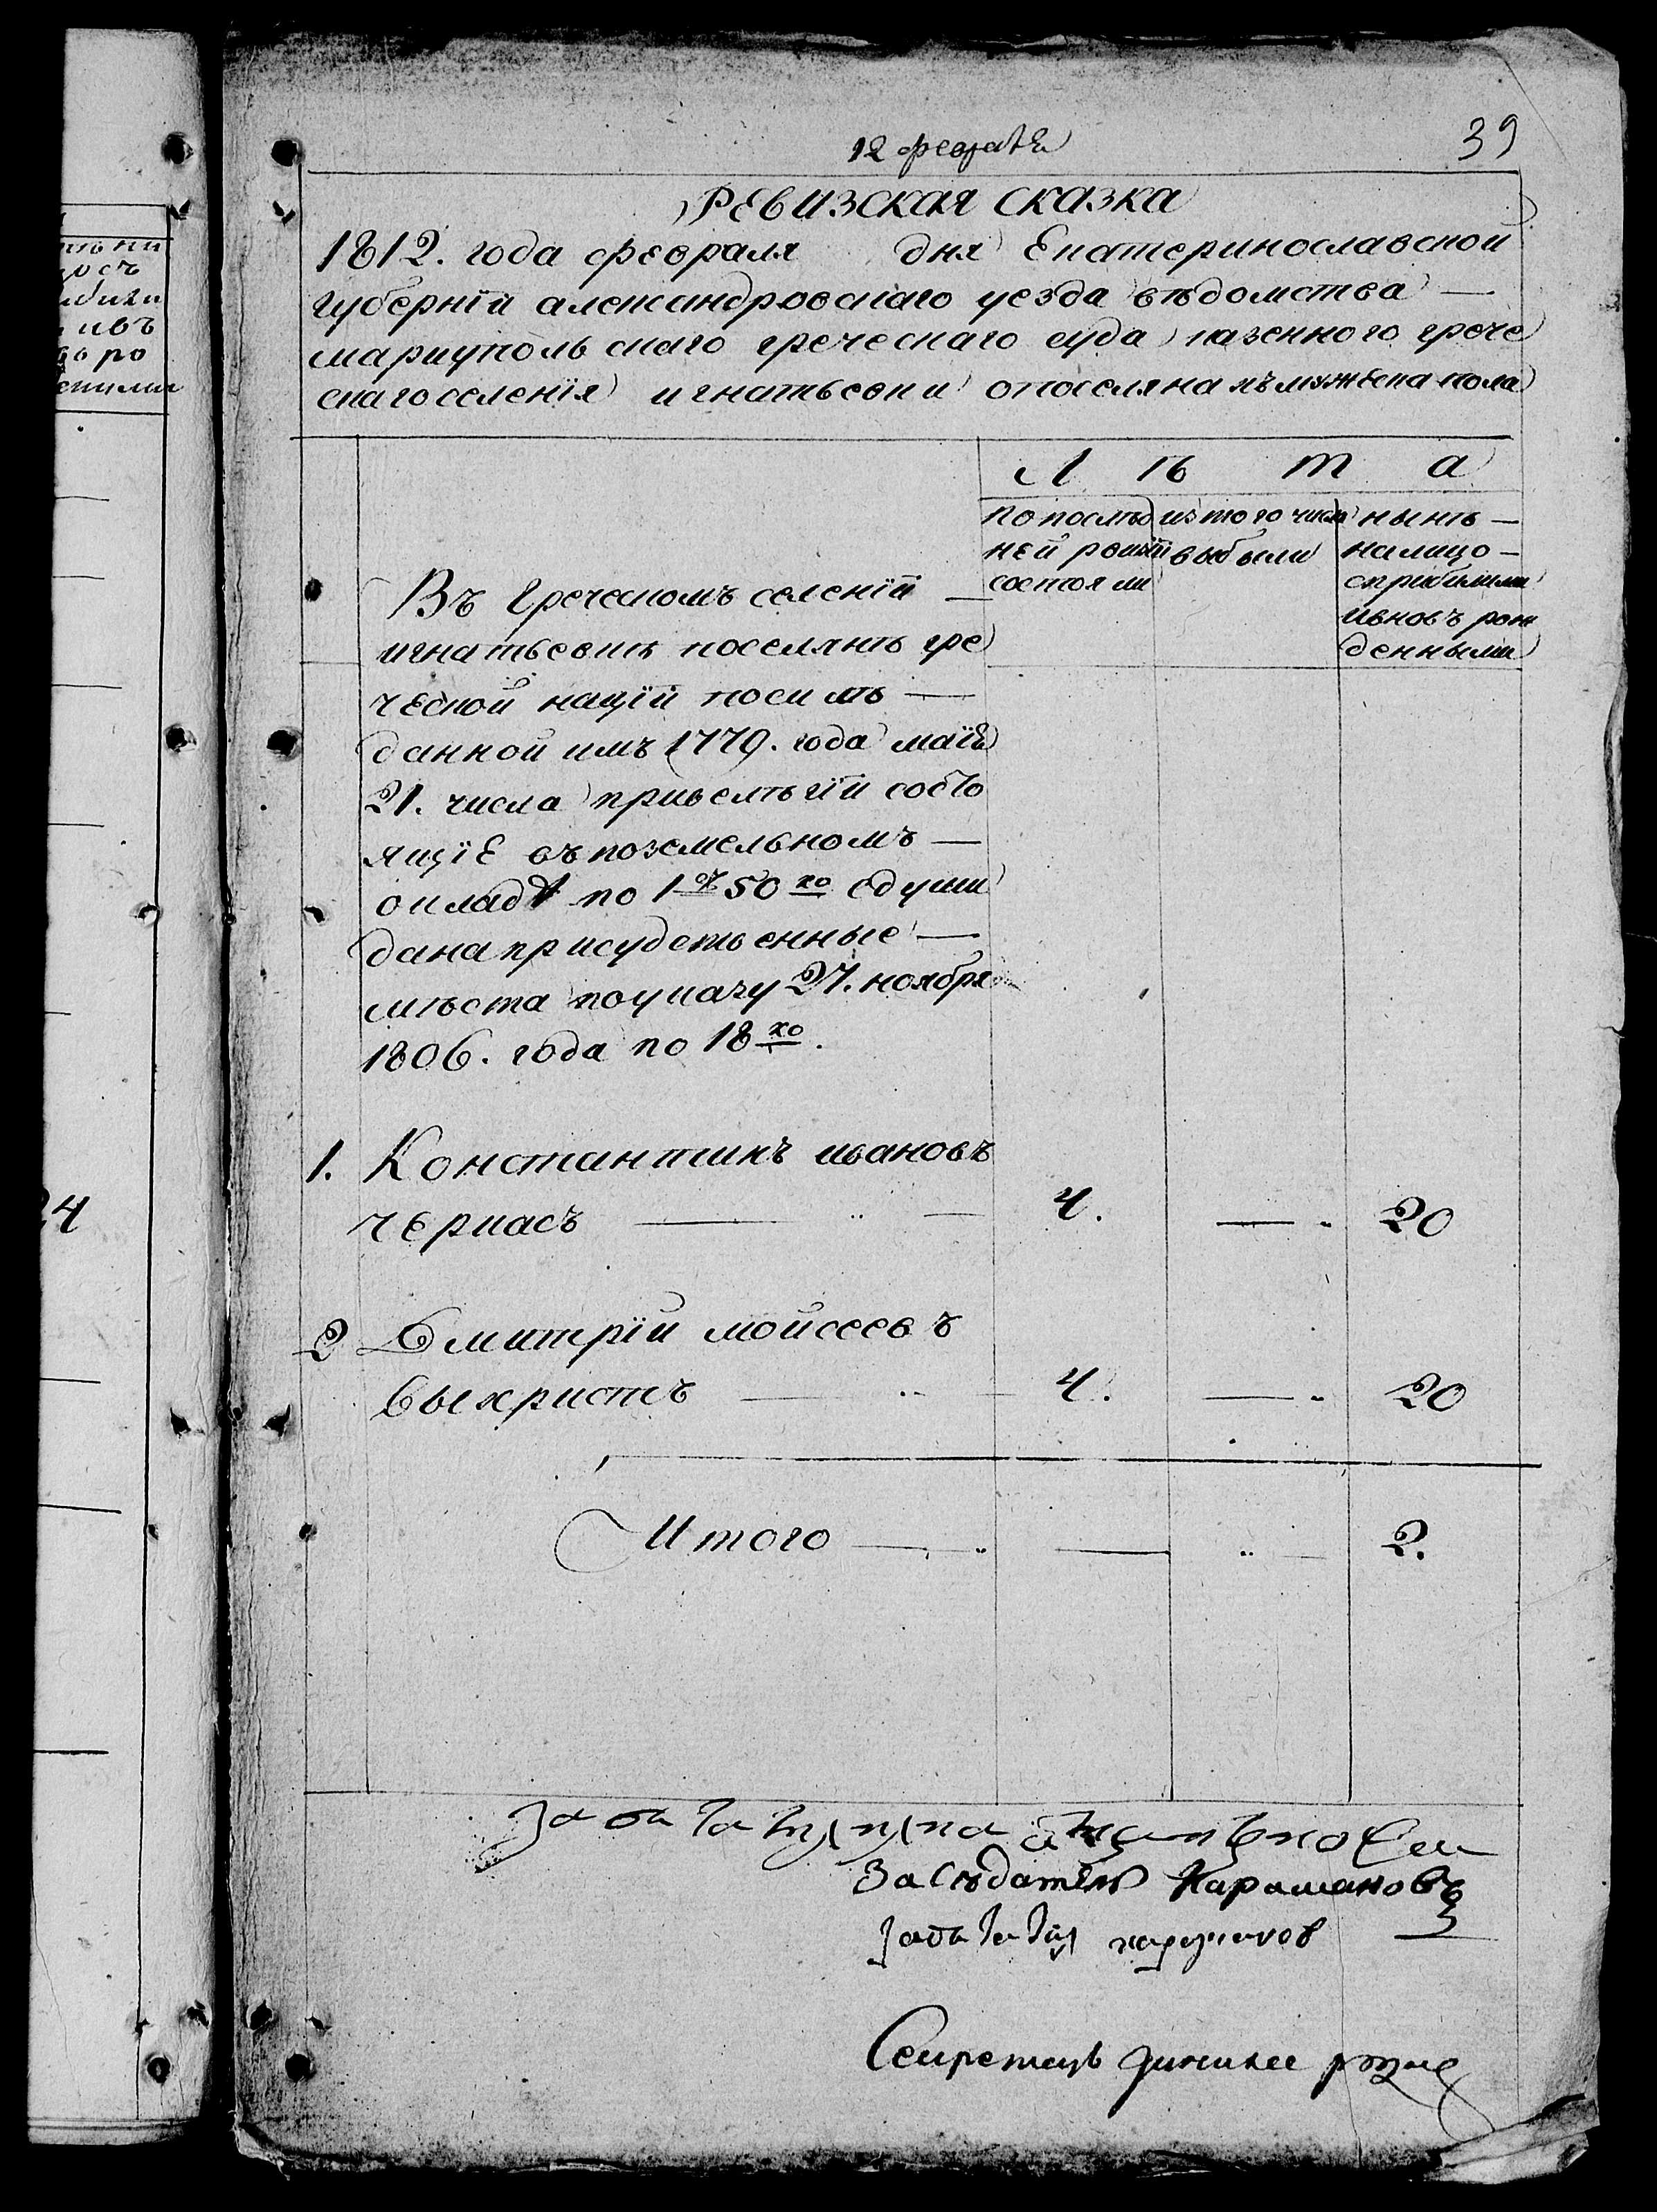 12 февраля
39
РЕВИЗСКАЯ СКАЗКА
1812. года февраля дня Екатеринославской
губерніи александровскаго уезда вѣдомства —
мариупольскаго греческаго суда казенного грече
скаго селенія игнатьевки опоселянахъ мужеска пола
Л ѣ т а
По послѣд
ней ревизіи
состояли
из того числа
выбыли
нынѣ —
налицо —
сприбилыми
ивновъ рож
денными
Въ Греческомъ селеніи —
игнатьевкѣ поселянъ гре
ческой націи посилѣ —
данной имъ 1779. года маія
21. числа привелѣгіи состо
ящіе въ поземельномъ —
окладѣ по 1 р 50 ко сдуши
дана присудственные —
мѣста поуказу 27. ноября
1806. года по 18 ко.
1. Константинъ ивановъ
черкасъ — 4. — 20
2 Дмитрій мойсеевъ
выхристъ — 4. — 20
Итого — — — 2.
Заседатель Карамановъ
Секретарь
24